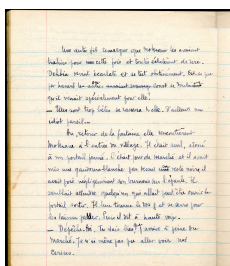 Une autre fit remarquer que Mokrane les avaient
trahies pour cette fois et toutes éclatèrent de rire.
Dehbia devint écarlate et se tut obstinément. Est-ce que
par hasard les autres
qu'il venait spécialement pour elle.
— Elles sont trop bêtes se disait-elle. D'ailleurs un
idiot pareil...
Au retour de la fontaine elle rencontrèrent
Mokrane à l'entrée du village. Il était seul, assis
à un portail fermé. C'était jour de marché et il avait
mis une gandoura blanche
posé négligemment son burnous sur l'épaule. Il
semblait attendre quelqu'un qui allait peut-être ouvrir le
portail sortir. Il leur tourna le dos et se serra pour
les laisser passer. Puis il dit à haute voix :
— Dépêche-toi. Tu vois l'heure ? J'arrive à peine du
marché. Je n'ai même pas pu aller voir nos
cerises.